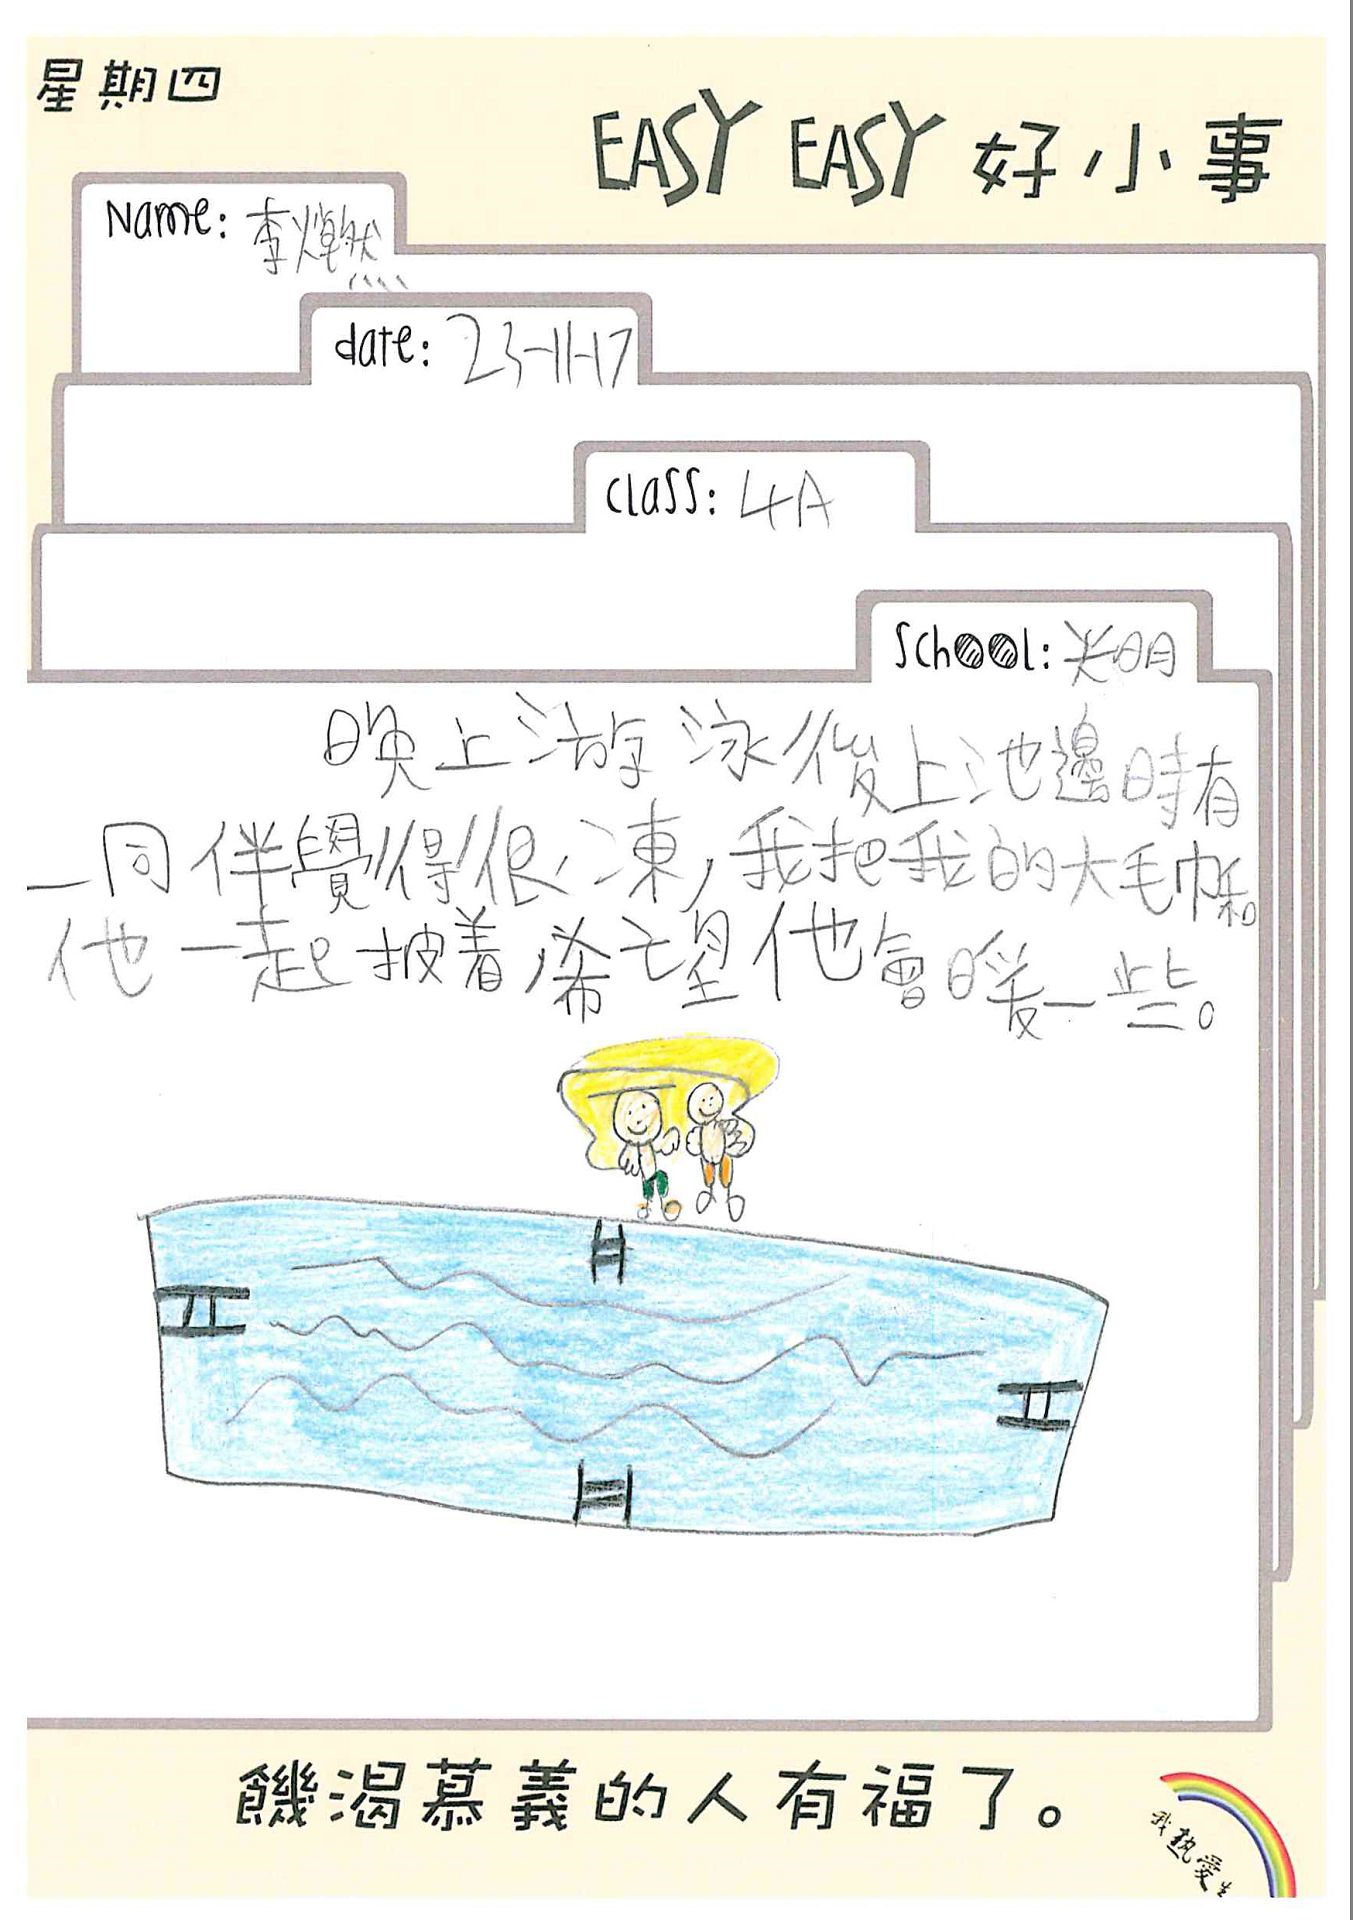 星期四
EASY EASY 好小事
Name: 李焯然
date: 23-11-17
class: 4A
School: 光明
晚上游泳後上池邊時有
一同伴覺得很凍,我把我的大毛巾和
他一起披着,希望他會暖一些。
饑渴慕義的人有福了。
我熱愛生